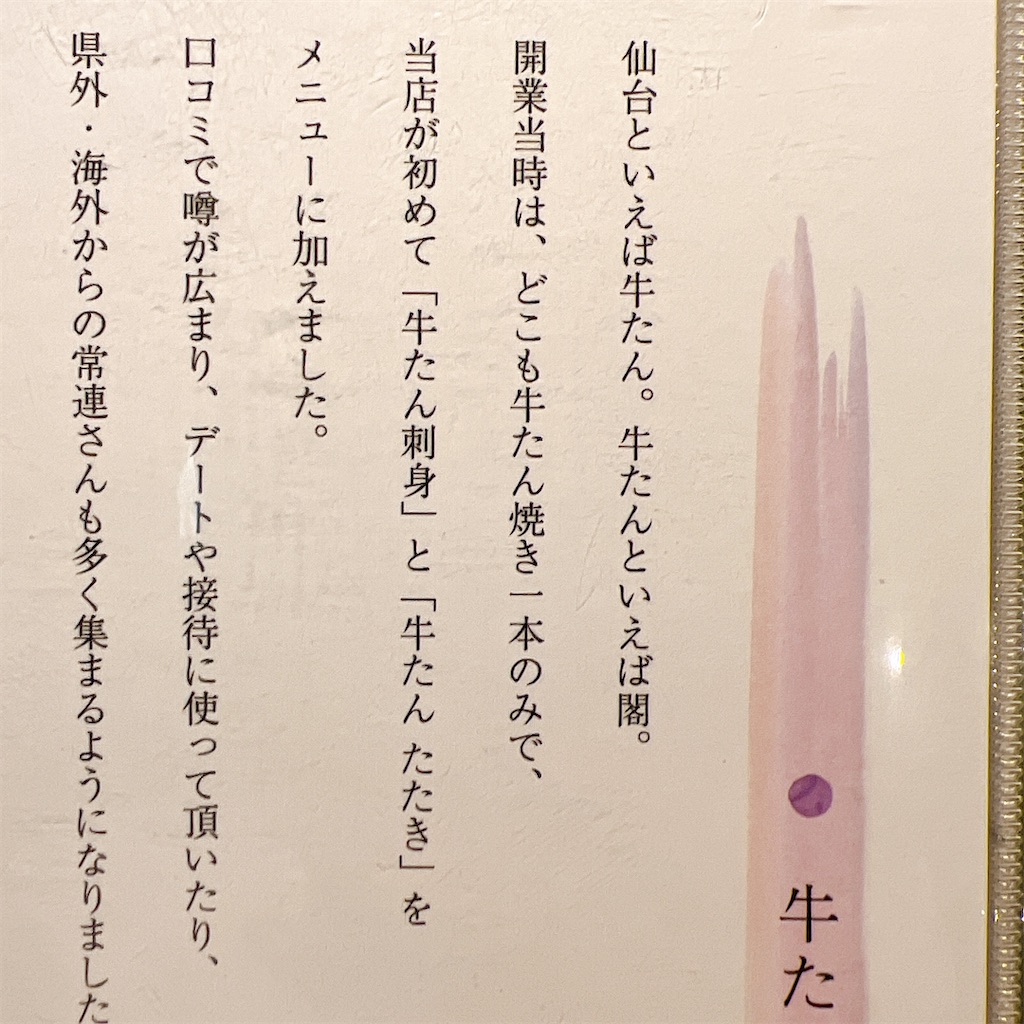 牛た
仙台といえば牛たん。牛たんといえば閣。
開業当時は、どこも牛たん焼き一本のみで、
当店が初めて「牛たん刺身」と「牛たん たたき」を
メニューに加えました。
口コミで噂が広まり、デートや接待に使って頂いたり、
県外・海外からの常連さんも多く集まるようになりました